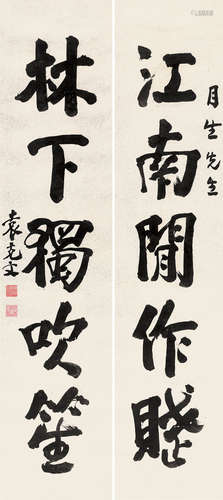 月生先生
江南閒作賦
林下獨吹笙
袁克文